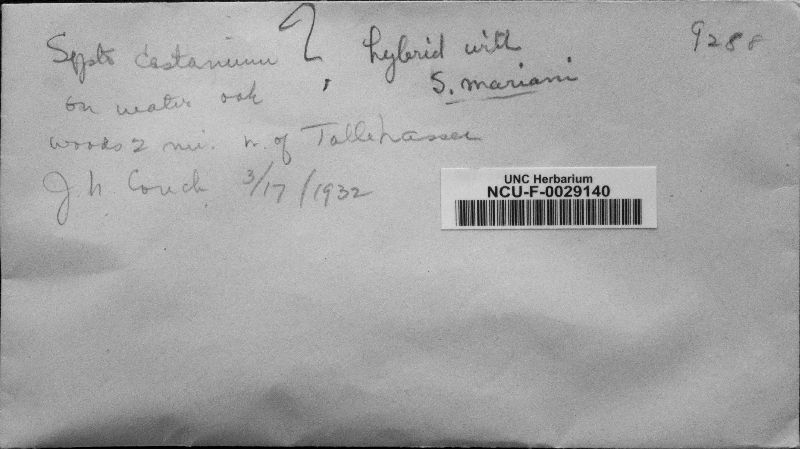 Septo castanium ? hybrid with 9288
S. mariani
on water oak
woods 2 mi. n. of Tallehassee
J. N. Couch 3/17/1932
UNC Herbarium
NCU-F-0029140